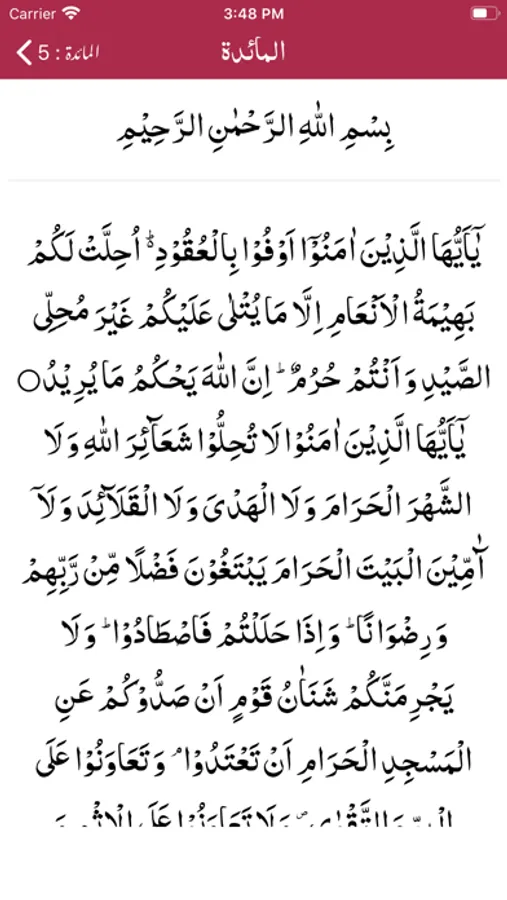 Carrier 3:48 PM
المائدة : 5 المآئدة
بِسْمِ اللّٰهِ الرَّحْمٰنِ الرَّحِيْمِ
يٰۤاَيُّهَا الَّذِيْنَ اٰمَنُوْۤا اَوْفُوْا بِالْعُقُوْدِ ؕ۬ اُحِلَّتْ لَكُمْ
بَهِيْمَةُ الْاَنْعَامِ اِلَّا مَا يُتْلٰى عَلَيْكُمْ غَيْرَ مُحِلِّى
الصَّيْدِ وَاَنْتُمْ حُرُمٌ ؕ اِنَّ اللّٰهَ يَحْكُمُ مَا يُرِيْدُ○
يٰۤاَيُّهَا الَّذِيْنَ اٰمَنُوْا لَا تُحِلُّوْا شَعَآئِرَ اللّٰهِ وَلَا
الشَّهْرَ الْحَرَامَ وَلَا الْهَدْىَ وَلَا الْقَلَآئِدَ وَلَاۤ
آٰمِّيْنَ الْبَيْتَ الْحَرَامَ يَبْتَغُوْنَ فَضْلًا مِّنْ رَّبِّهِمْ
وَرِضْوَانًا ؕ وَاِذَا حَلَلْتُمْ فَاصْطَادُوْا ؕ وَلَا
يَجْرِمَنَّكُمْ شَنَاٰنُ قَوْمٍ اَنْ صَدُّوْكُمْ عَنِ
الْمَسْجِدِ الْحَرَامِ اَنْ تَعْتَدُوْا ۘ وَتَعَاوَنُوْا عَلَى